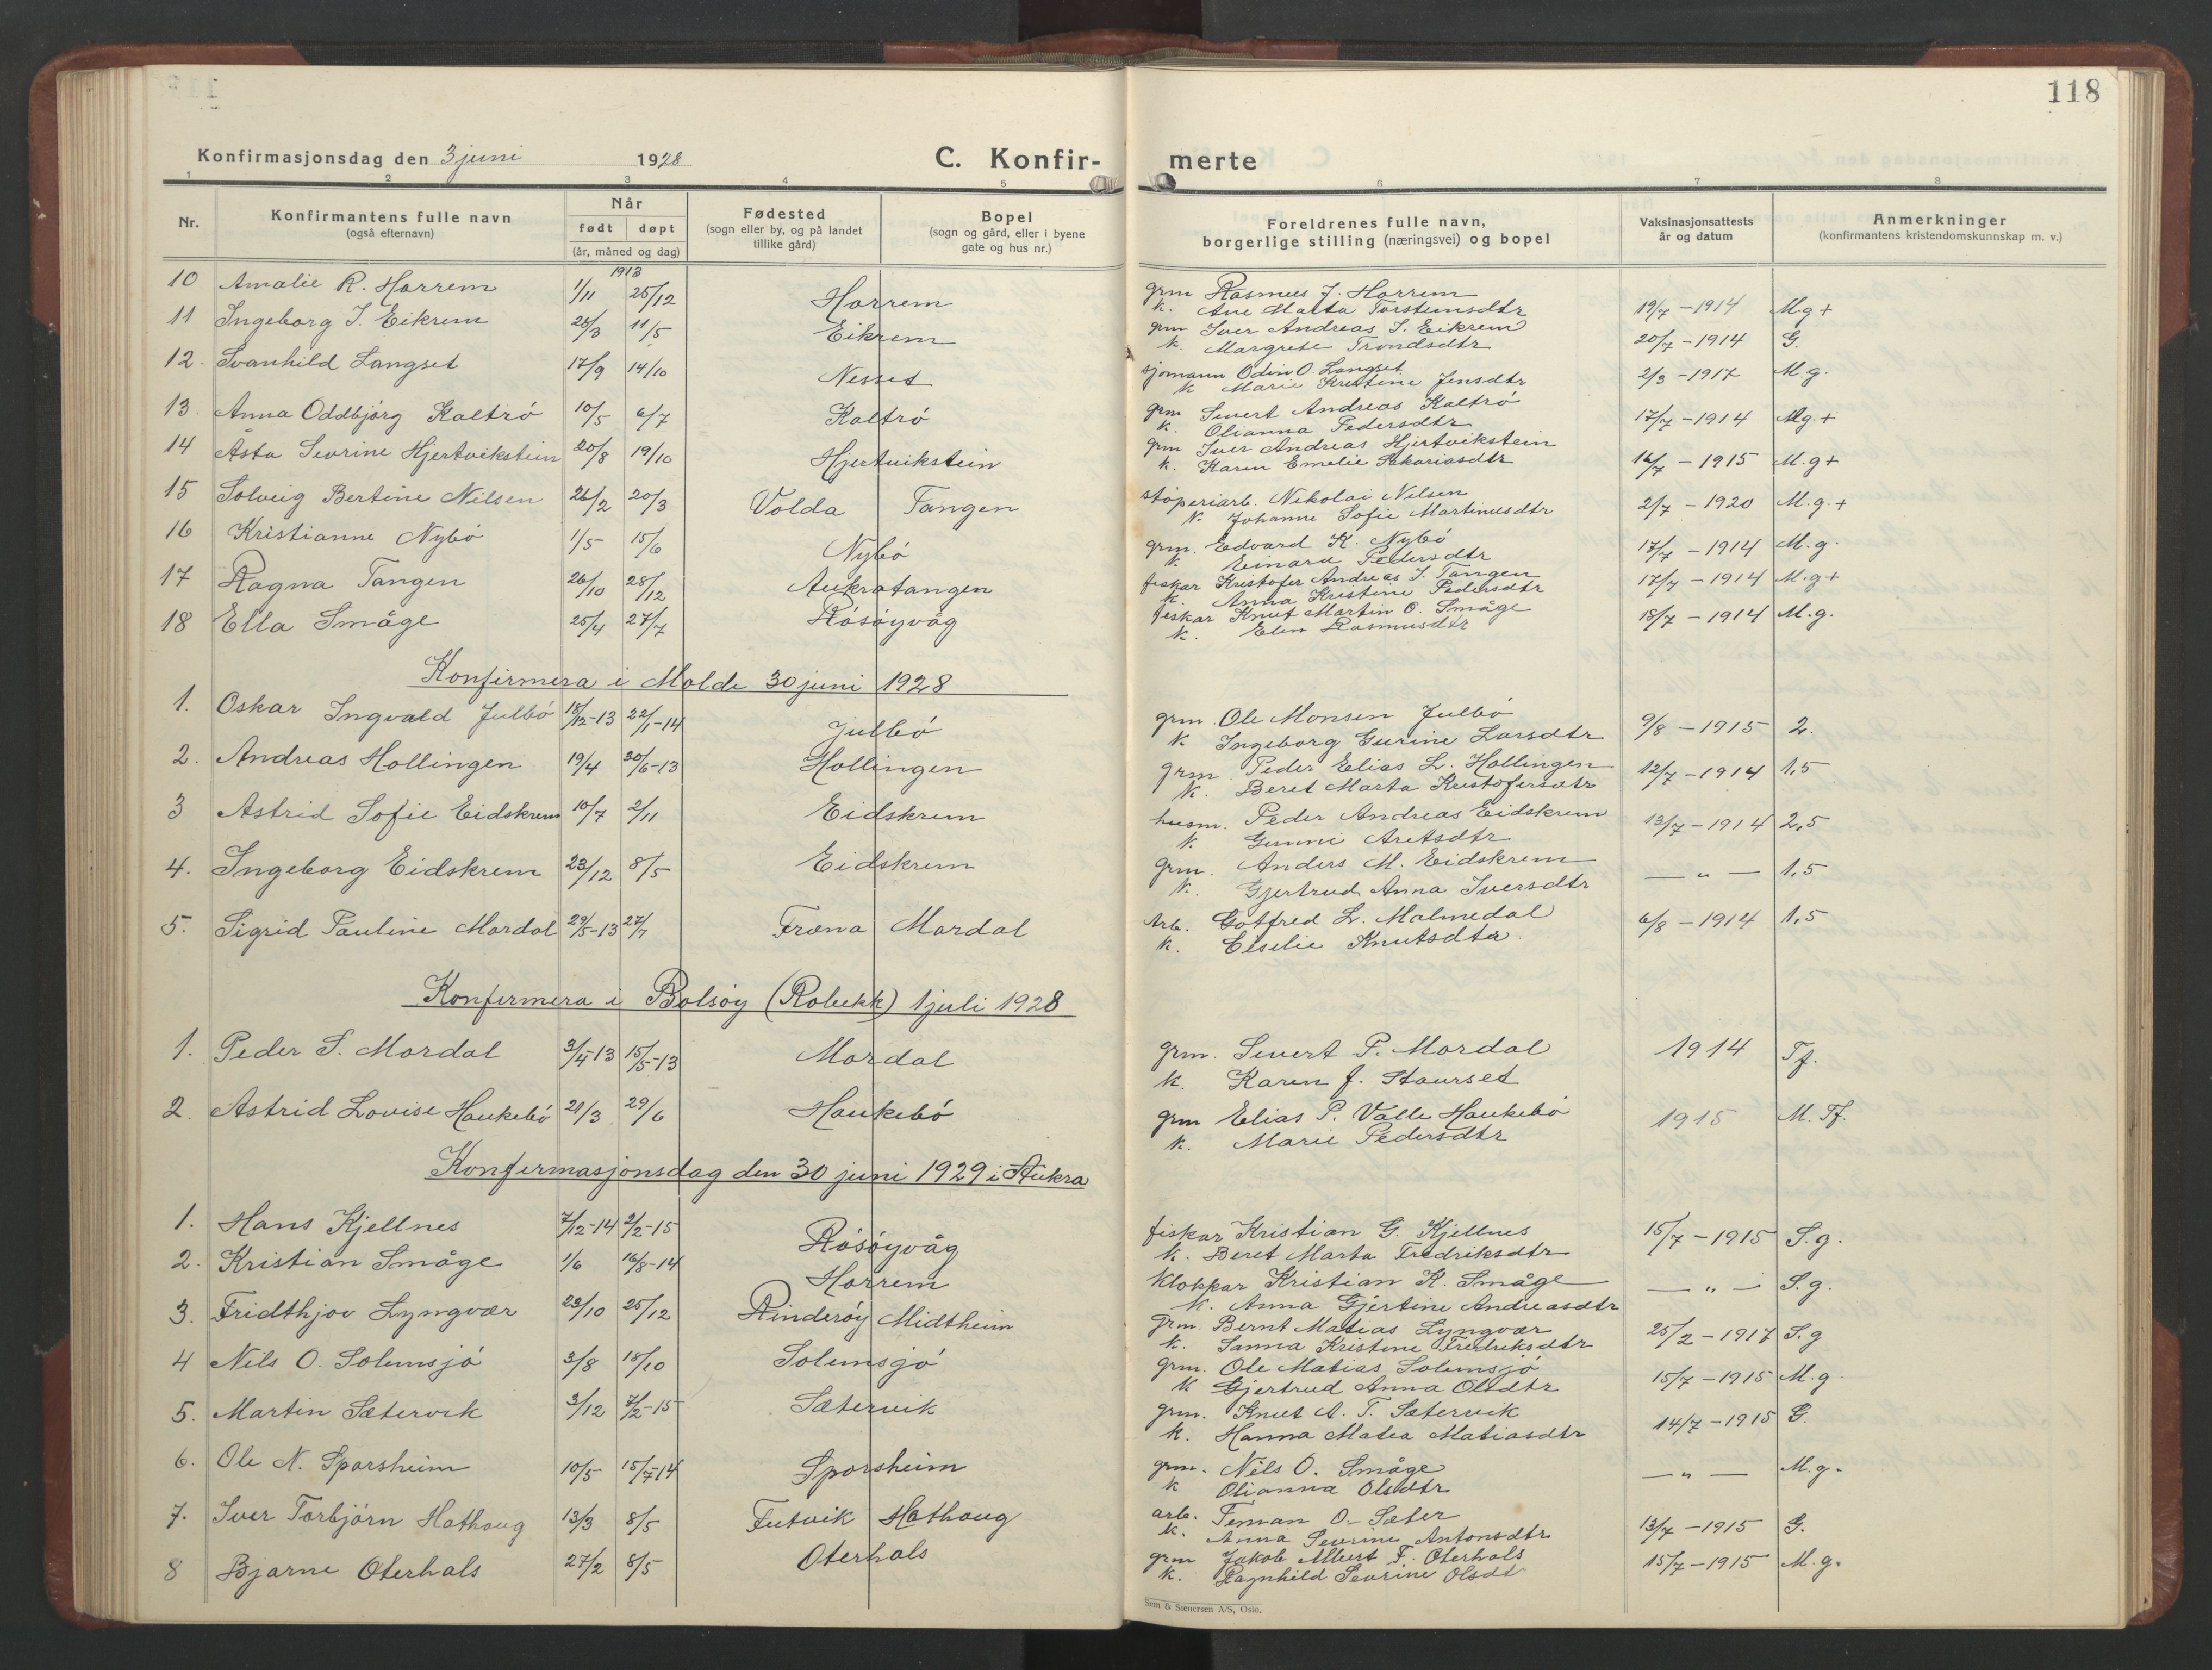 118
Konfirmasjonsdag den 3 juni 1928 C. Konfir- merte
1 2 3 4 5 6 7 8
Nr. Konfirmantens fulle navn (også efternavn) Når født døpt (år, måned og dag) Fødested (sogn eller by, og på landet tillike gård) Bopel (sogn og gård, eller i byene gate og hus nr.) Foreldrenes fulle navn, borgerlige stilling (næringsvei) og bopel Vaksinasjonsattests år og datum Anmerkninger (konfirmantens kristendomskunnskap m. v.)
1913
10 Amalie R. Horrem 1/11 25/12 Horrem grm Rasmus J. Horrem 19/7 - 1914 M.g+
k. Ane Marta Torsteinsdtr
11 Ingeborg I. Eikrem 28/3 11/5 Eikrem grm Iver Andreas I. Eikrem 20/7 - 1914 G.
k. Margrete Trondsdtr
12. Svanhild Langset 17/9 14/10 Nesset sjømann Odin O. Langset 2/3 - 1917 M.g.
k Marie Kristine Jensdtr
13. Anna Oddbjørg Kaltrø 10/5 6/7 Kaltrø grm Sivert Andreas Kaltrø 17/7 - 1914 Mg.+
k. Olianna Pedersdtr
14 Åsta Sevrine Hjertvikstein 20/8 19/10 Hjertvikstein grm Iver Andreas Hjertvikstein 16/7 - 1915 M.g+
k. Karen Emelie Sakariasdtr
15 Solveig Bertine Nilsen 26/2 20/3 Volda Tangen støperiarb. Nikolai Nilsen 2/7 - 1920 M.g.+
k. Johanne Sofie Martinusdtr
16 Kristianne Nybø 1/5 15/6 Nybø grm. Edvard K. Nybø 17/7 - 1914 M.g.
k. Einara Pedersdtr
17 Ragna Tangen 26/10 28/12 Aukratangen fiskar Kristofer Andreas I. Tangen 17/7 - 1914 M.g+
k. Anna Kristine Pedersdtr
18 Ella Småge 25/4 27/7 Røsøyvåg fiskar Knut Martin O. Småge 18/7 - 1914 M.g.
k. Elen Rasmusdtr
Konfirmera i Molde 30 juni 1928
1. Oskar Ingvald Julbø 18/12-13 22/1-14 Julbø grm. Ole Monsen Julbø 9/8 - 1915 2.
k. Ingeborg Gurine Larsdtr
2. Andreas Hollingen 19/4 20/6-13 Hollingen grm. Peder Elias L. Hollingen 12/7 - 1914 1,5
k. Beret Marta Kristofersdtr
3 Astrid Sofie Eidskrem 10/7 2/11 Eidskrem husm. Peder Andreas Eidskrem 13/7 - 1914 2,5
k. Gunni Aretsdtr
4. Ingeborg Eidskrem 23/12 8/5 Eidskrem grm. Anders M. Eidskrem — " — 1,5
k. Gjertrud Anna Iversdtr
5. Sigrid Pauline Mordal 29/5-13 27/7 Fræna Mordal Arb. Gotfred L. Malmedal 6/8 - 1914 1,5
k. Elselie Knutsdtr.
Konfirmera i Bolsøy (Røbekk) 1 juli 1928
1. Peder S. Mordal 3/4-13 15/5-13 Mordal grm. Sivert P. Mordal 1914 Tf.
k. Karen J. Staurset
2. Astrid Lovise Haukebø 21/3 29/6 Haukebø grm Elias P. Valle Haukebø 1915 M. Tf.
k. Marie Pedersdtr
Konfirmasjonsdag den 30 juni 1929 i Aukra
1. Hans Kjellnes 7/12-14 2/2-15 Røsøyvåg fiskar Kristian G. Kjellnes 15/7 - 1915 S.g.
k. Beret Marta Fredriksdtr
2. Kristian Småge 1/6 16/8-14 Horrem Klokkar Kristian K. Småge — " — S.g.
k. Anna Gjertine Andreasdtr
3. Fridthjov Lyngvær 23/10 25/12 Rinderøy Midtheim grm. Bernt Matias Lyngvær 25/2 - 1917 S.g
k. Sanna Kristine Fredriksdtr
4 Nils O. Solemsjø 3/8 18/10 Solemsjø grm. Ole Matias Solemsjø 15/7 - 1915 M.g.
k Gjertrud Anna Olsdtr
5. Martin Sætervik 3/12 7/2-15 Sætervik grm. Knut A. T. Sætervik 14/7 - 1915 G.
k. Hanna Matea Matiasdtr
6. Ole N. Sporsheim 10/5 15/7-14 Sporsheim grm. Nils O. Småge — " — M.g.
k Olianna Olsdtr
7. Iver Torbjørn Hathaug 13/3 8/5 Futvik Hathoug arb. Teman O. Sæter 13/7 - 1915 G.
k. Anna Sevrine Antonsdtr
8 Bjarne Oterhals 27/2 8/5 Oterhals grm Jakob Albert F. Oterhals 15/7 - 1915 M.g.
k. Ragnhild Sevrine Olsdt
Sem & Stenersen A/S, Oslo.